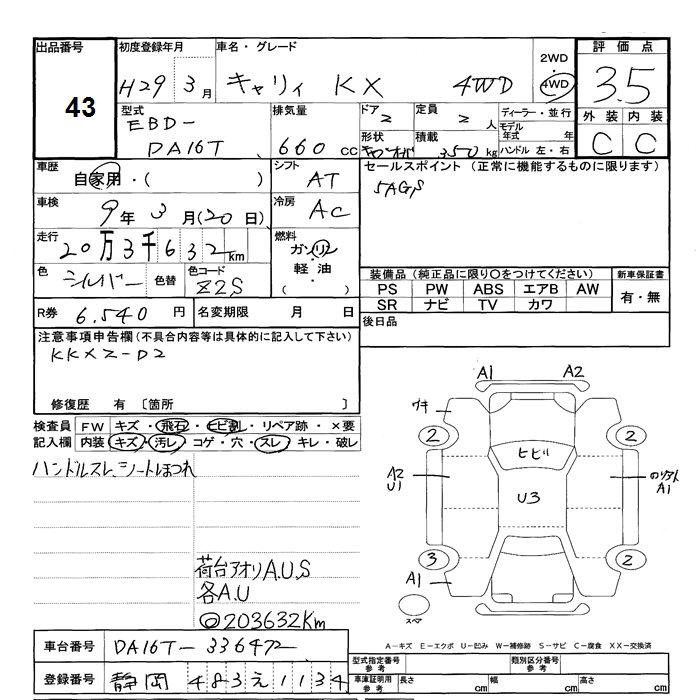 出品番号 初度登録年月 車名・グレード 2WD 評価点
43 H29 3月 キャリィ KX 4WD 4WD 3.5
型式 排気量 ドア 定員 ディーラー・並行 外装 内装
EBD- 2 2人 モデル年式 年 C C
DA16T 660cc 形状 積載 350kg ハンドル 左・右
車歴 シフト セールスポイント(正常に機能するものに限ります)
自家用・( ) AT 5AGS
車検 冷房
9年3月(20日) AC
走行 燃料
20万3千632Km ガソリン
色 色替 色コード 軽油 装備品(純正品に限り○をつけてください) 新車保証書
シルバー Z2S ( ) PS PW ABS エアB AW 有・無
R券 6.540円 名変期限 月 日 SR ナビ TV カワ
注意事項申告欄(不具合内容等は具体的に記入して下さい) 後日品
KKXZ-D2
修復歴 有 〔箇所 〕
検査員 FW キズ・飛石・ヒビ割・リペア跡・×要
記入欄 内装 キズ・汚レ・コゲ・穴・スレ・キレ・破レ
ハンドルスレ、シートほつれ
荷台アオリA.U.S
各A.U
◎203632Km
A1 A2
ウキ
2 2
ヒビ
A2
U1
U3
A1
3 2
A1
スペア
A-キズ E-エクボ U-凹み W-補修跡 S-サビ C-腐食 XX-交換済
車台番号 DA16T-336472
型式指定番号 参考 類別区分番号 参考
登録番号 静岡 483え1134
車庫証明用 参考 長さ cm 幅 cm 高さ cm